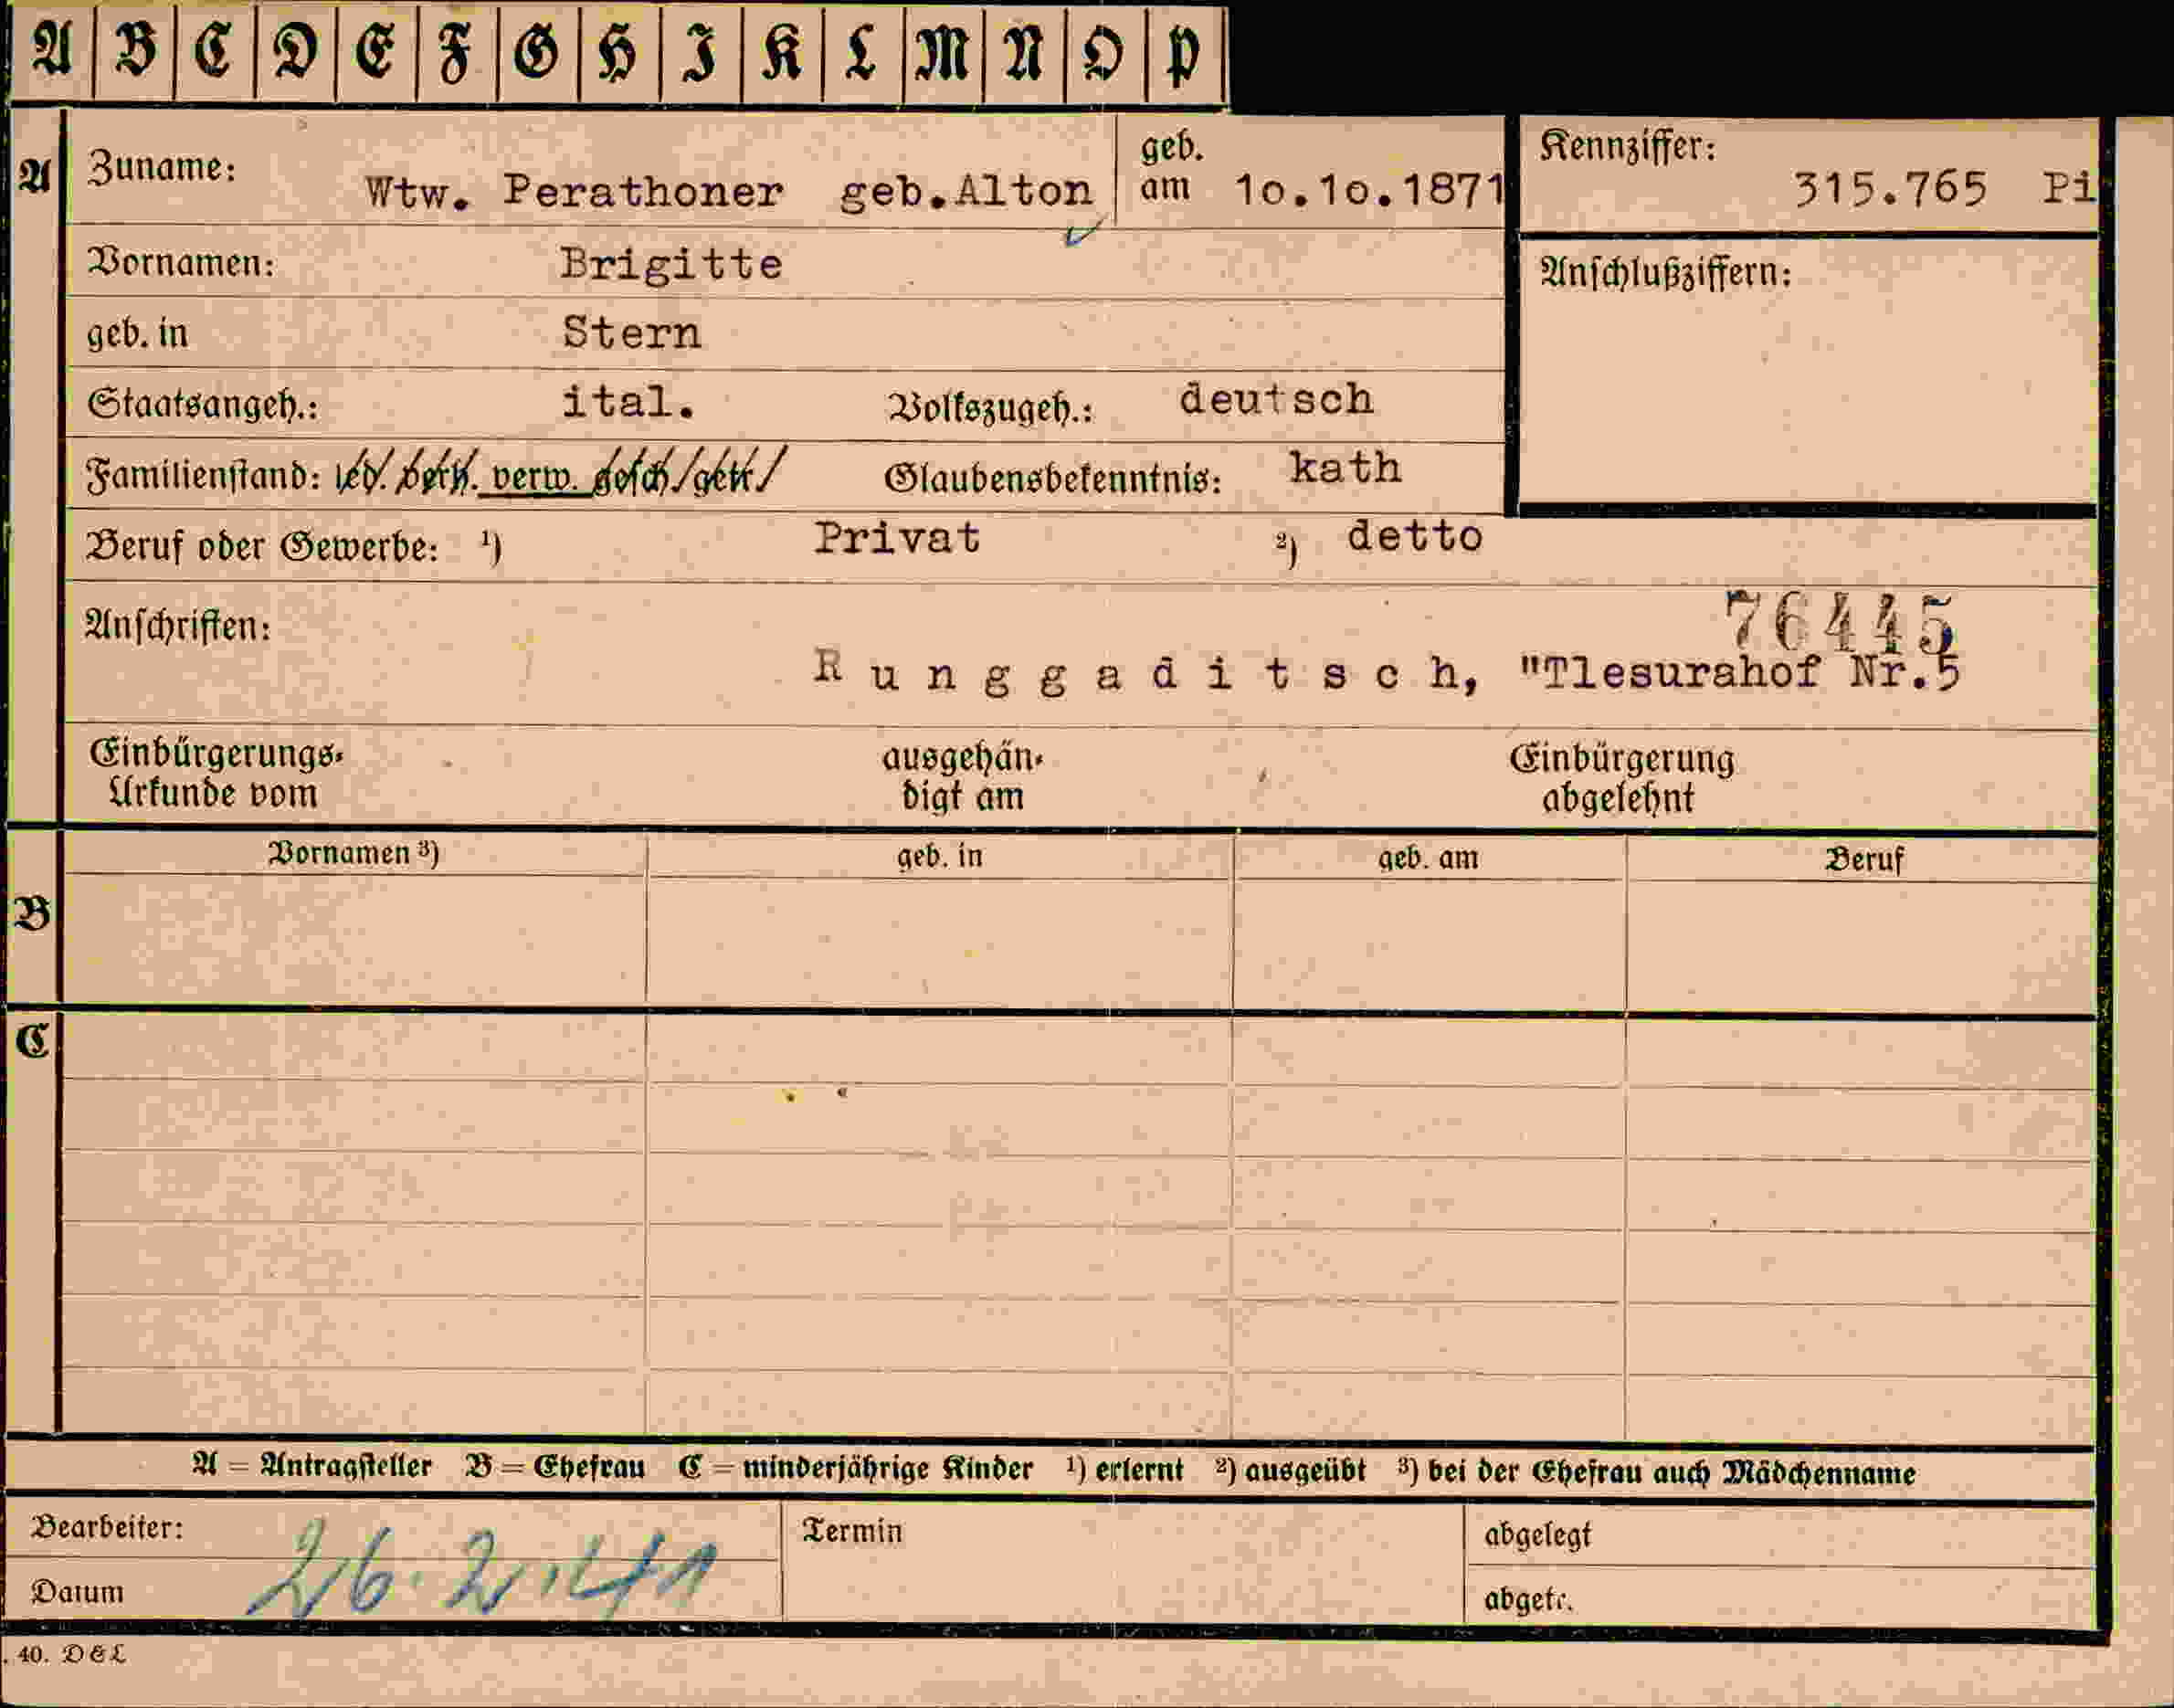 A B C D E F G H I K L M N O P
A Zuname: Wtw. Perathoner geb.Alton geb. am 10.10.1871 Kennziffer: 315.765 Pi
Vornamen: Brigitte Anschlußziffern:
geb. in Stern
Staatsangeh.: ital. Volkszugeh.: deutsch
Familienstand: led. verh. verw. gesch./getr./ Glaubensbekenntnis: kath
Beruf oder Gewerbe: ¹) Privat ²) detto
76445
Anschriften: Runggaditsch, "Tlesurahof Nr.5
Einbürgerungs- ausgehän- Einbürgerung
Urkunde vom digt am abgelehnt
Vornamen ³) geb. in geb. am Beruf
B
C
A = Antragsteller B = Ehefrau C = minderjährige Kinder ¹) erlernt ²) ausgeübt ³) bei der Ehefrau auch Mädchenname
Bearbeiter: Termin abgelegt
Datum 26.2.41 abgetr.
. 40. D & L